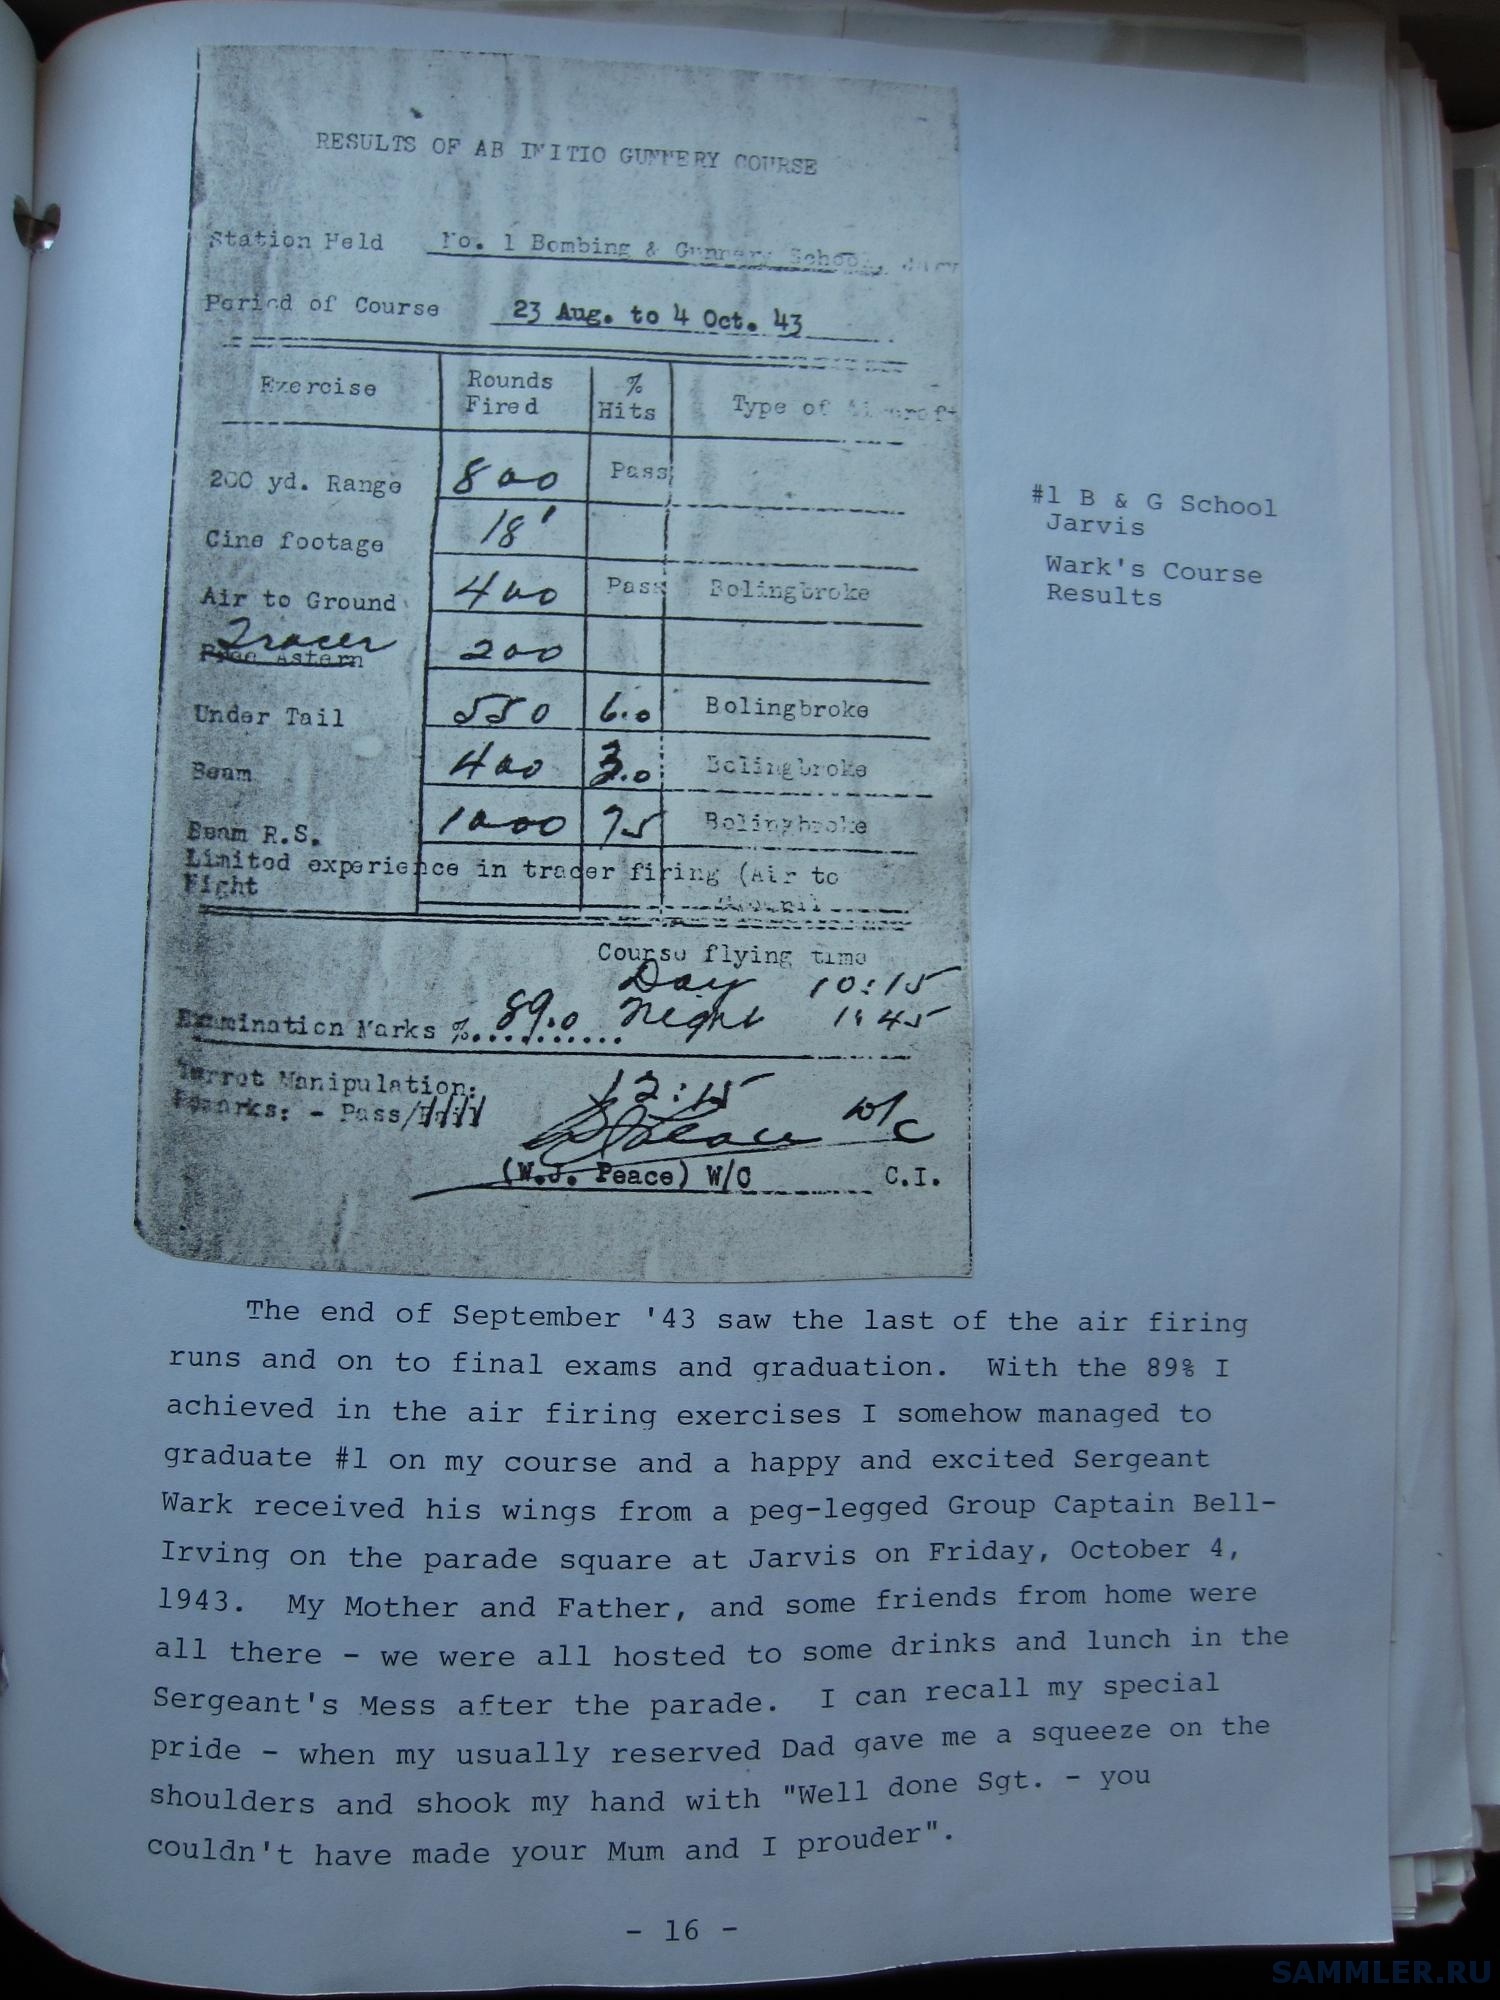 RESULTS OF AB INITIO GUNNERY COURSE
Station Held No. 1 Bombing & Gunnery School,
Period of Course 23 Aug. to 4 Oct. 43
Exercise Rounds Fired % Hits Type of Aircraft
200 yd. Range 800 Pass
Cine footage 18'
Air to Ground 400 Pass Bolingbroke
Tracer
Free Astern 200
Under Tail 550 6.0 Bolingbroke
Beam 400 3.0 Bolingbroke
Beam R.S. 1000 75 Bolingbroke
Limited experience in tracer firing (Air to
Fight
Course flying time
Day 10:15
Examination Marks % 89.0 Night 1:45
Turret Manipulation: 12:15
Remarks: - Pass/Fail W/C
(W.J. Peace) W/C C.I.
#1 B & G School
Jarvis
Wark's Course
Results
The end of September '43 saw the last of the air firing
runs and on to final exams and graduation. With the 89% I
achieved in the air firing exercises I somehow managed to
graduate #1 on my course and a happy and excited Sergeant
Wark received his wings from a peg-legged Group Captain Bell-
Irving on the parade square at Jarvis on Friday, October 4,
1943. My Mother and Father, and some friends from home were
all there - we were all hosted to some drinks and lunch in the
Sergeant's Mess after the parade. I can recall my special
pride - when my usually reserved Dad gave me a squeeze on the
shoulders and shook my hand with "Well done Sgt. - you
couldn't have made your Mum and I prouder".
- 16 -
SAMMLER.RU